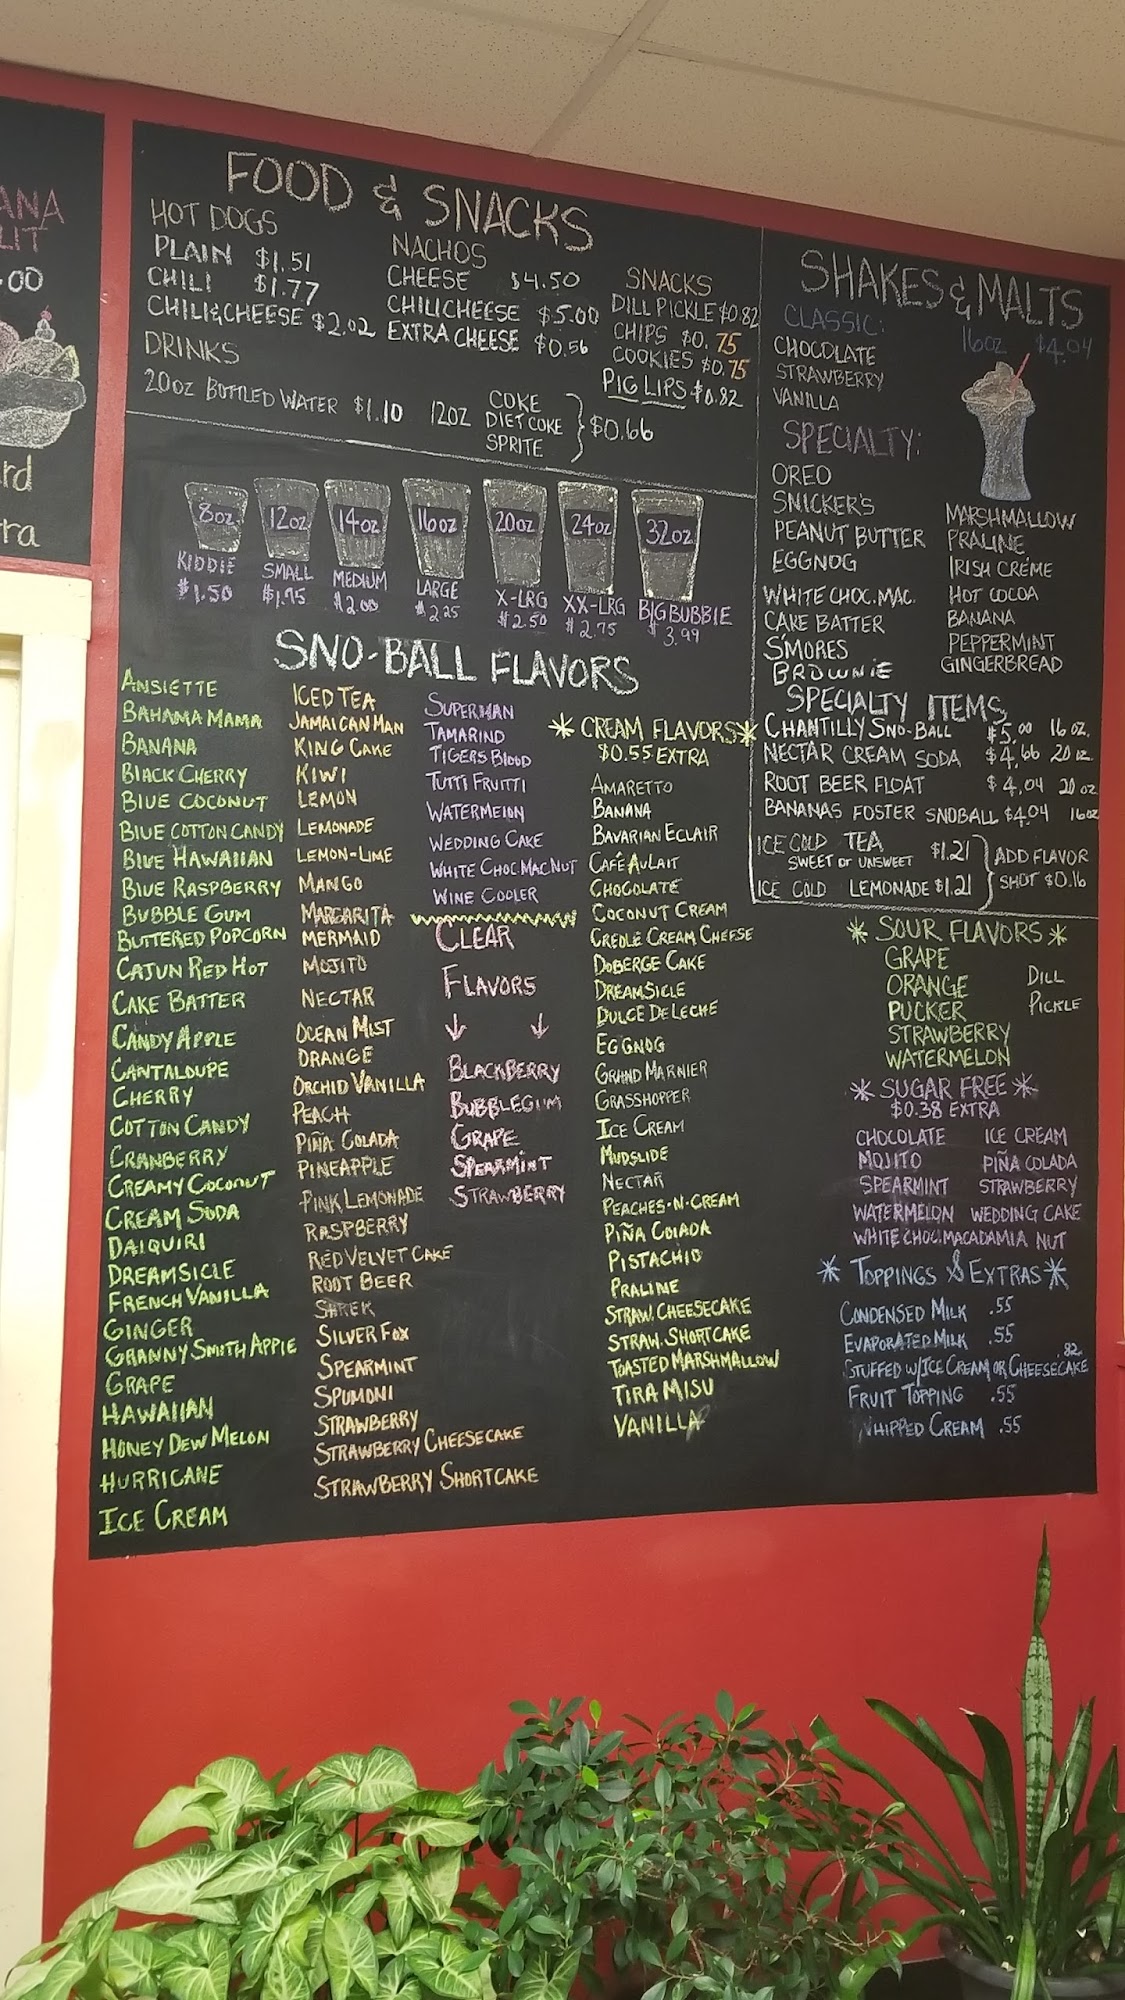 ANA
LIT
.00
rd
tra
FOOD & SNACKS
HOT DOGS
PLAIN $1.51
CHILI $1.77
CHILI&CHEESE $2.02
NACHOS
CHEESE $4.50
CHILICHEESE $5.00
EXTRA CHEESE $0.56
SNACKS
DILL PICKLE $0.82
CHIPS $0.75
COOKIES $0.75
PIG LIPS $0.82
DRINKS
20oz BOTTLED WATER $1.10
12OZ COKE
DIET COKE
SPRITE
$0.66
8oz
KIDDIE
$1.50
12oz
SMALL
$1.75
14oz
MEDIUM
$2.00
16oz
LARGE
$2.25
20oz
X-LRG
$2.50
24oz
XX-LRG
$2.75
32oz
BIGBUBBIE
$3.99
SNO-BALL FLAVORS
ANSIETTE
BAHAMA MAMA
BANANA
BLACK CHERRY
BLUE COCONUT
BLUE COTTON CANDY
BLUE HAWAIIAN
BLUE RASPBERRY
BUBBLE GUM
BUTTERED POPCORN
CAJUN RED HOT
CAKE BATTER
CANDY APPLE
CANTALOUPE
CHERRY
COTTON CANDY
CRANBERRY
CREAMY COCONUT
CREAM SODA
DAIQUIRI
DREAMSICLE
FRENCH VANILLA
GINGER
GRANNY SMITH APPLE
GRAPE
HAWAIIAN
HONEY DEW MELON
HURRICANE
ICE CREAM
ICED TEA
JAMAICAN MAN
KING CAKE
KIWI
LEMON
LEMONADE
LEMON-LIME
MANGO
MARGARITA
MERMAID
MOJITO
NECTAR
OCEAN MIST
ORANGE
ORCHID VANILLA
PEACH
PIÑA COLADA
PINEAPPLE
PINK LEMONADE
RASPBERRY
RED VELVET CAKE
ROOT BEER
SHREK
SILVER FOX
SPEARMINT
SPUMONI
STRAWBERRY
STRAWBERRY CHEESECAKE
STRAWBERRY SHORTCAKE
SUPERMAN
TAMARIND
TIGERS BLOOD
TUTTI FRUITTI
WATERMELON
WEDDING CAKE
WHITE CHOC. MAC. NUT
WINE COOLER
CLEAR
FLAVORS
↓ ↓
BLACKBERRY
BUBBLEGUM
GRAPE
SPEARMINT
STRAWBERRY
* CREAM FLAVORS *
$0.55 EXTRA
AMARETTO
BANANA
BAVARIAN ECLAIR
CAFÉ AU LAIT
CHOCOLATE
COCONUT CREAM
CREOLE CREAM CHEESE
DOBERGE CAKE
DREAMSICLE
DULCE DE LECHE
EGGNOG
GRAND MARNIER
GRASSHOPPER
ICE CREAM
MUDSLIDE
NECTAR
PEACHES-N-CREAM
PIÑA COLADA
PISTACHIO
PRALINE
STRAW. CHEESECAKE
STRAW. SHORTCAKE
TOASTED MARSHMALLOW
TIRA MISU
VANILLA
SHAKES & MALTS
16oz $4.04
CLASSIC:
CHOCOLATE
STRAWBERRY
VANILLA
SPECIALTY:
OREO
SNICKER'S
PEANUT BUTTER
EGGNOG
WHITE CHOC. MAC.
CAKE BATTER
S'MORES
BROWNIE
MARSHMALLOW
PRALINE
IRISH CRÉME
HOT COCOA
BANANA
PEPPERMINT
GINGERBREAD
SPECIALTY ITEMS
CHANTILLY SNO-BALL $5.00 16 oz.
NECTAR CREAM SODA $4.66 20 oz
ROOT BEER FLOAT $4.04 20 oz
BANANAS FOSTER SNOBALL $4.04 16oz
ICE COLD TEA $1.21
SWEET or UNSWEET
ICE COLD LEMONADE $1.21
ADD FLAVOR
SHOT $0.16
* SOUR FLAVORS *
GRAPE
ORANGE
PUCKER
STRAWBERRY
WATERMELON
DILL
PICKLE
* SUGAR FREE *
$0.38 EXTRA
CHOCOLATE ICE CREAM
MOJITO PIÑA COLADA
SPEARMINT STRAWBERRY
WATERMELON WEDDING CAKE
WHITE CHOC. MACADAMIA NUT
* TOPPINGS & EXTRAS *
CONDENSED MILK .55
EVAPORATED MILK .55
STUFFED w/ICE CREAM OR CHEESECAKE .82
FRUIT TOPPING .55
WHIPPED CREAM .55